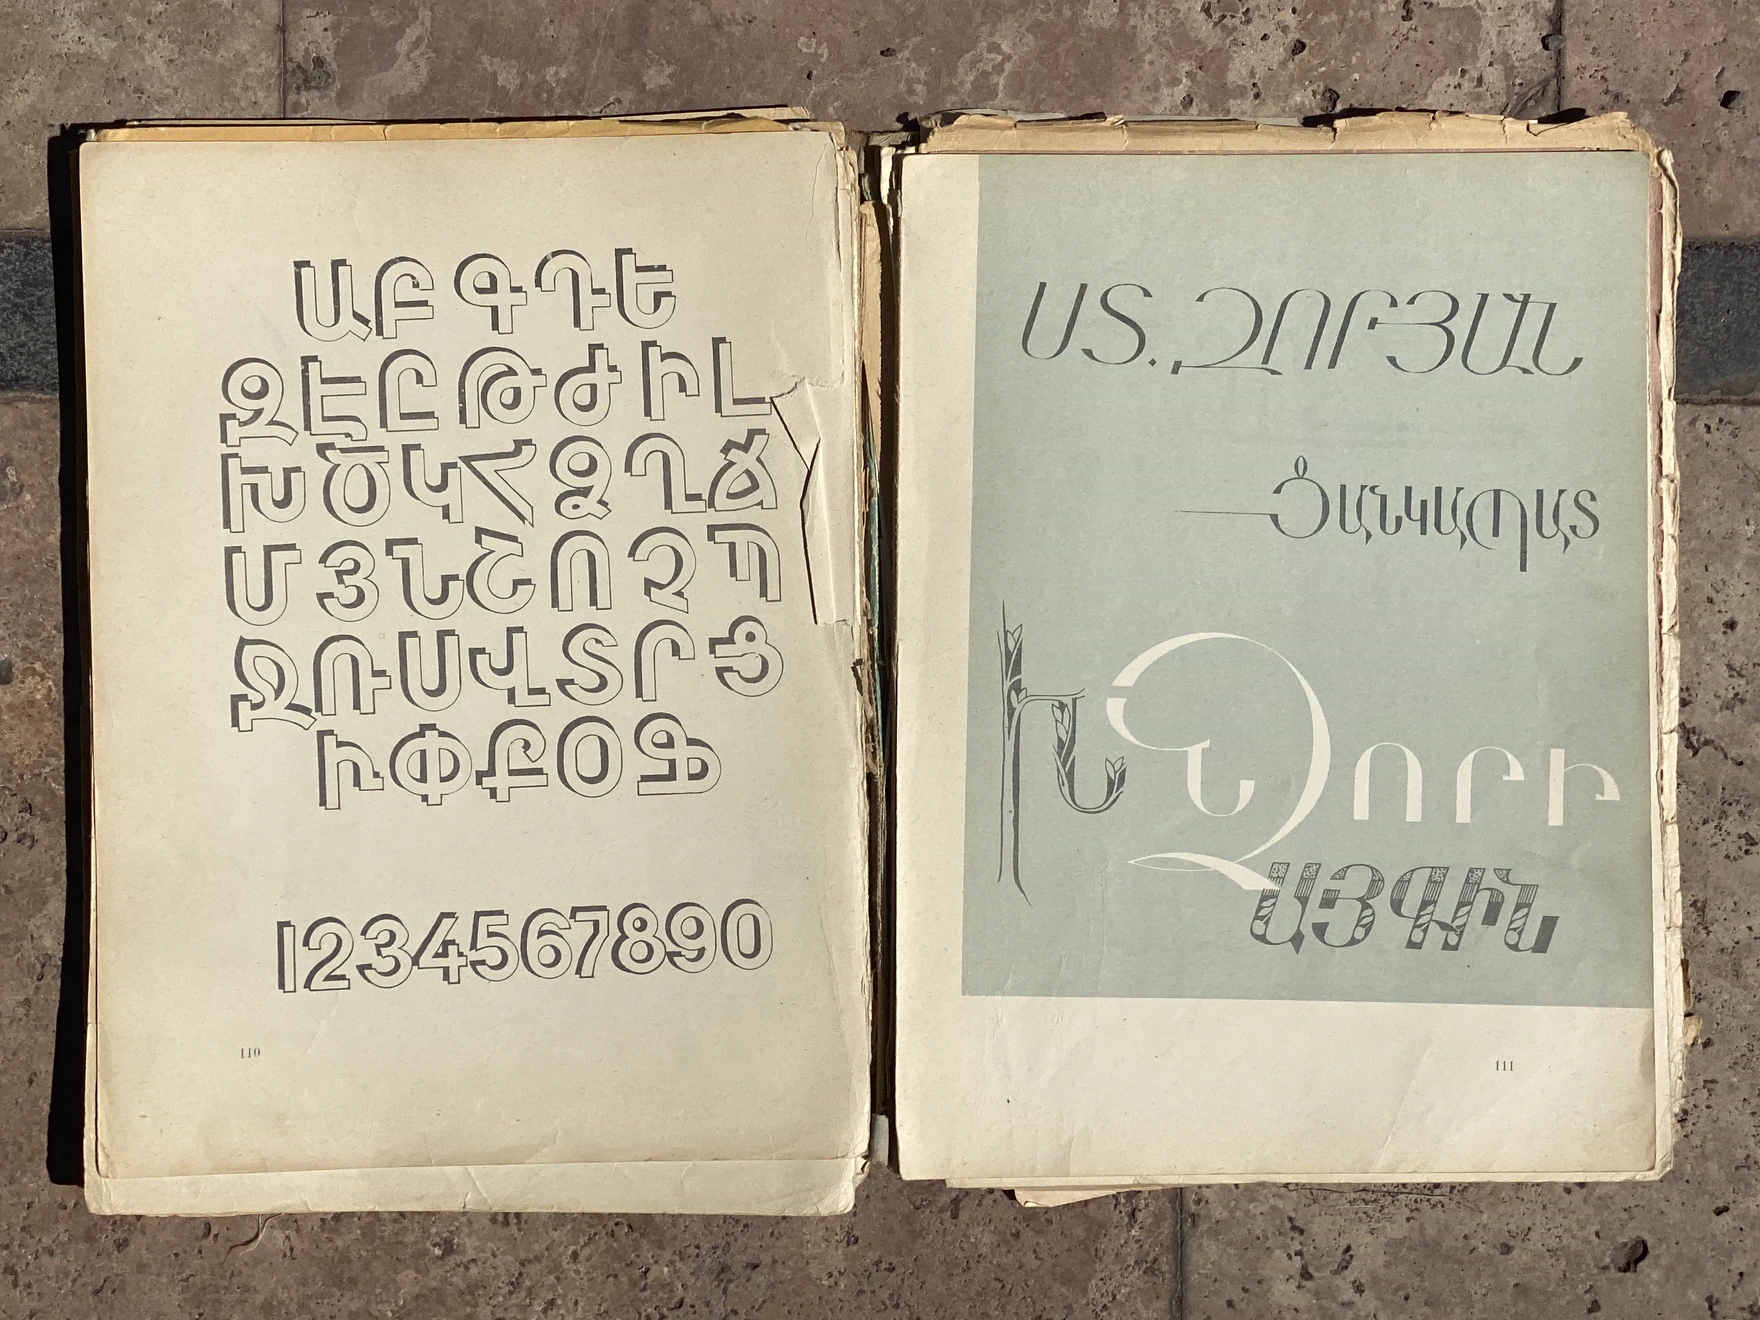 ԱԲԳԴԵ
ԶԷԸԹԺԻԼ
ԽԾԿՀՁՂՃ
ՄՅՆՇՈՉՊ
ՋՌՍՎՏՐՑ
ՒՓՔՕՖ
1234567890
110
ՍՏ. ԶՈՐՅԱՆ
ՑԱՆԿԱՊԱՏ
ԽՆՁՈՐԻ
ԱՅԳԻՆ
111